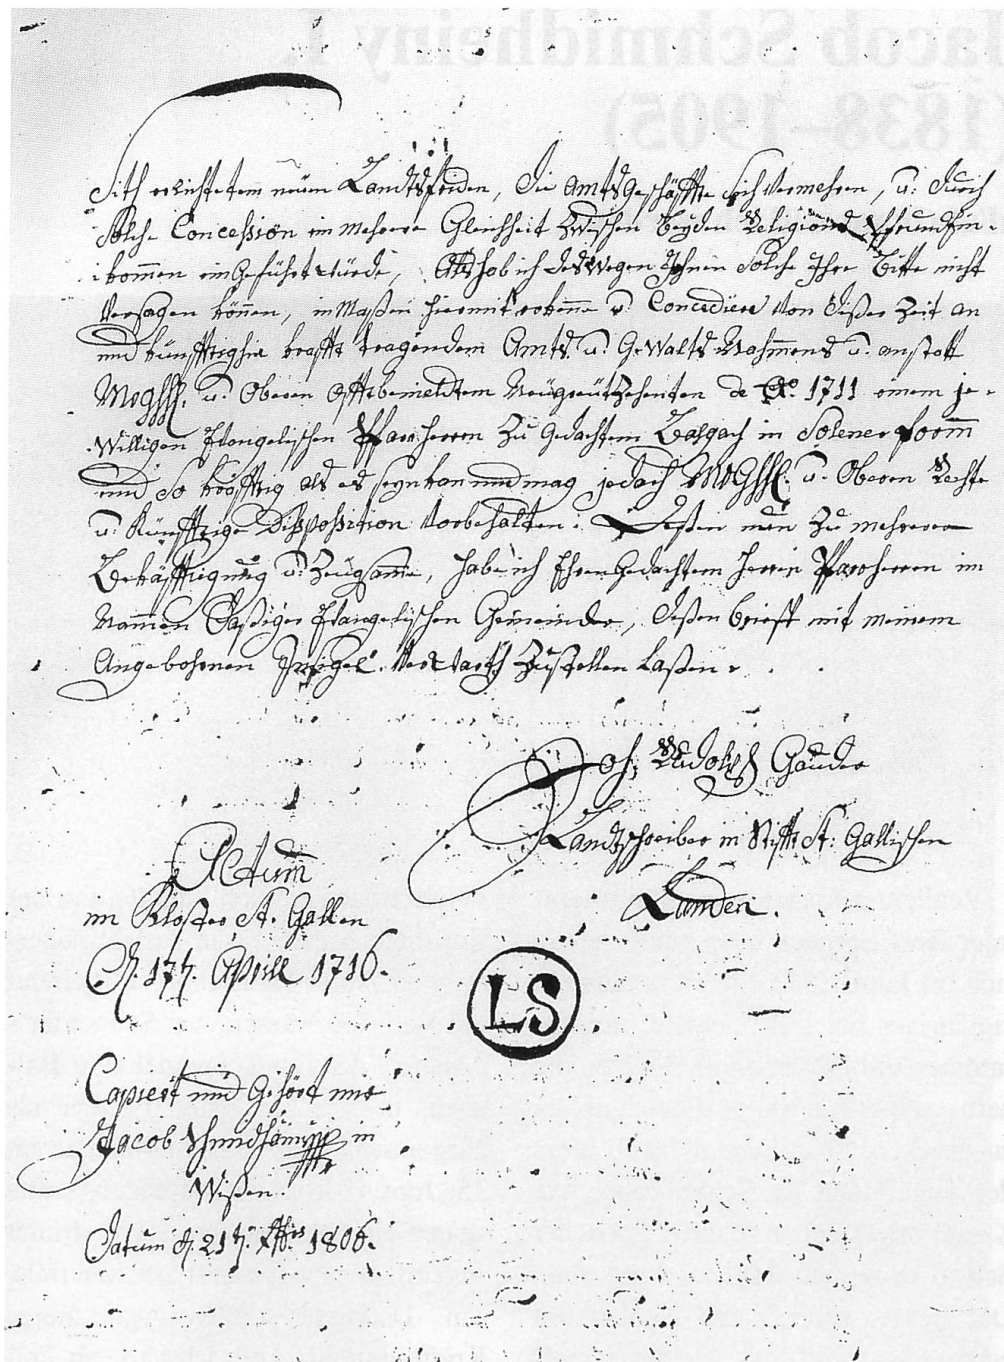 Sith erlichtetem neüen Landtsfriden, die Amts Geschäffte sich vermehren, u: durch
Solche Concession ein mehrere Gleichheit Zwischen beyden Religions Pfrundein-
kommen eingeführt würde, Alß hab ich deswegen Ihnen Solche Ihre Bitte nicht
Versagen können, inmaßen hiermit erkenne u. Concediere Von dißer Zeit an
und künfftighin krafft tragendem Amts u. Gewalts Nahmmens u. anstatt
MrGHH. u. Oberen offtbemeldtem NeügreütZehenten de Ao. 1711 einem je-
Willigen Evangelischen Pfarrherren Zu gedachtem Balgach in Solener Formm
und So kräfftig als es seyn kan und mag jedoch MrGHH. u. Oberen Rechte
u. Künfftige Disposition Vorbehalten. Deßen nun Zu mehrerer
Bekäfftigung u. Zeügsamme, habe ich Ehren gedachtem Herren Pfarrherren im
Nammen Daßiger Evangelischen Gemeinde, dießen brieff mit meinem
Angebohrnen Insigel Zustellen Laßen.
Joh. Rudolff Gauder
Landtschreiber in Stifft St: Gallischen
Landen.
Actum
im Kloster St. Gallen
d. 17t. Aprill 1716.
LS
Capiert und Gehört mir
Jacob in
Wißen.
Datum d. 21t. 1806.